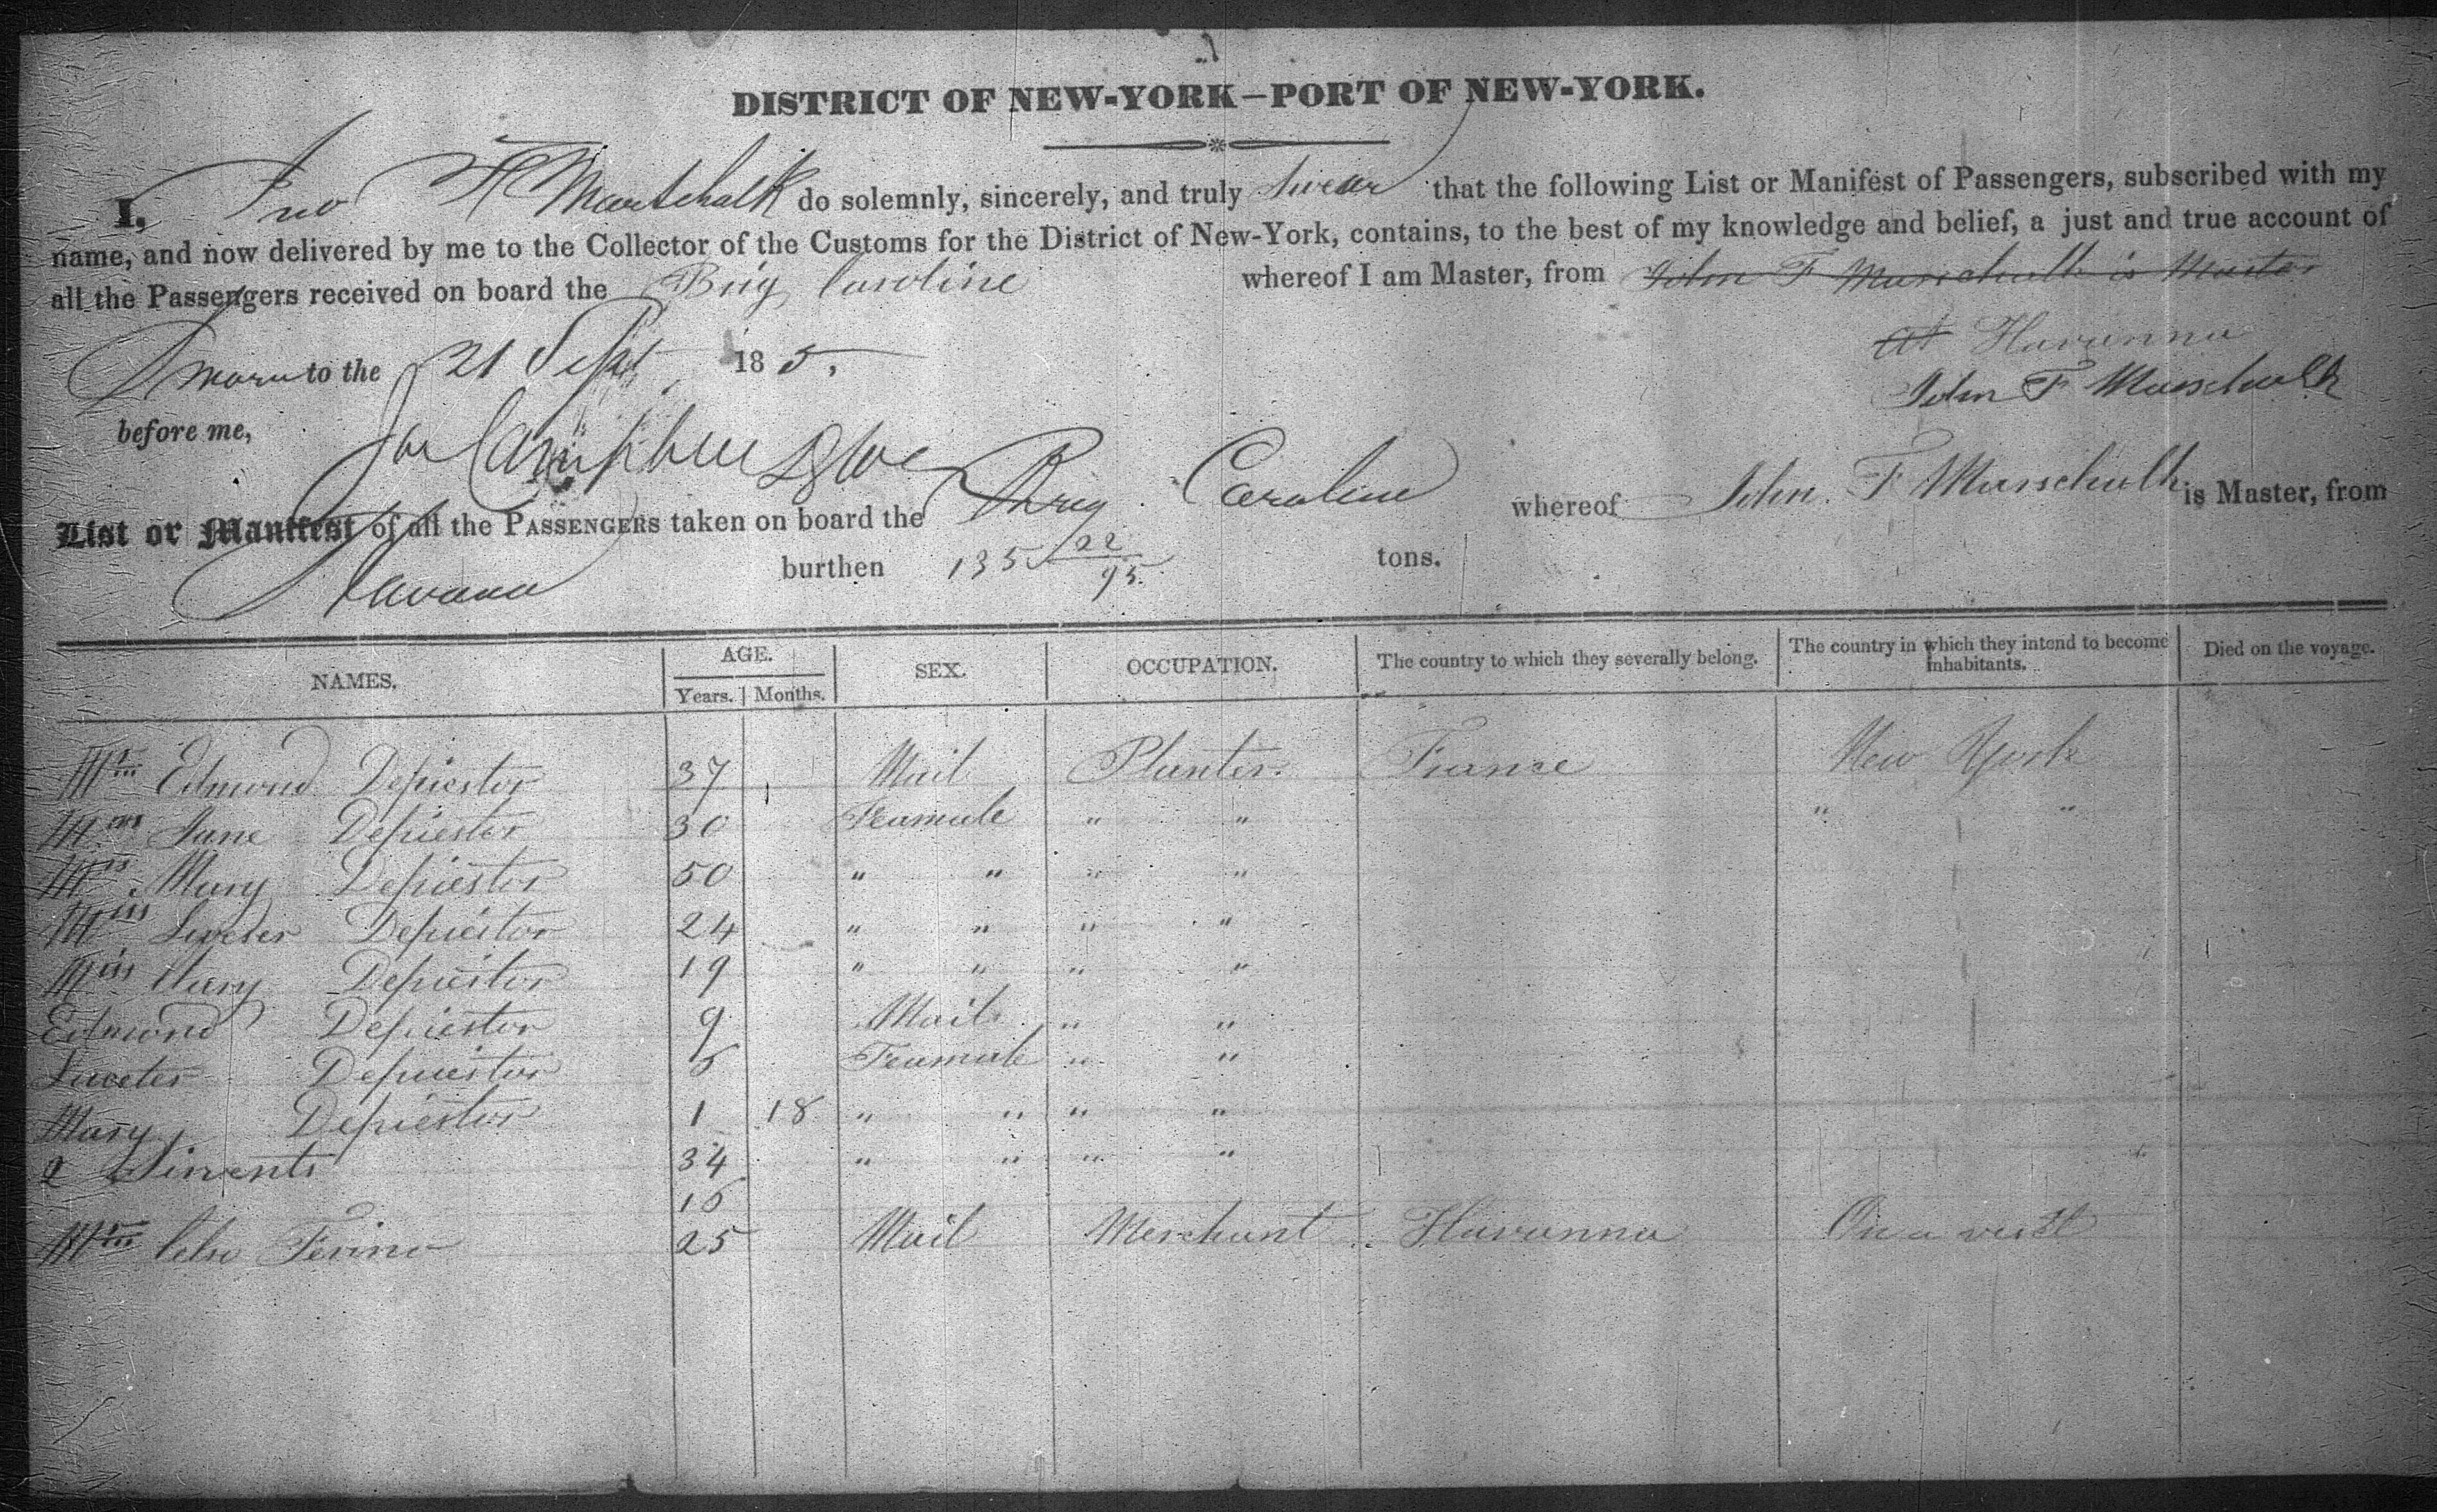 DISTRICT OF NEW-YORK—PORT OF NEW-YORK.
I, Jno F Marschalk do solemnly, sincerely, and truly Swear that the following List or Manifest of Passengers, subscribed with my
name, and now delivered by me to the Collector of the Customs for the District of New-York, contains, to the best of my knowledge and belief, a just and true account of
all the Passengers received on board the Brig Caroline whereof I am Master, from John F Marschalk is Master
at Havanna
Sworn to the 21 Sept 185
John F Marschalk
before me,
List or Manifest of all the PASSENGERS taken on board the Brig Caroline whereof John F Marschalk is Master, from
Havana burthen 135 22/95 tons.
NAMES. AGE. SEX. OCCUPATION. The country to which they severally belong. The country in which they intend to become inhabitants. Died on the voyage.
Years. Months.
Mr Edmond Depiester 37 Mail Planter France New York
Mrs Jane Depiester 30 Feamale " " " "
Mrs Mary Depiester 50 " " " "
Miss Depiester 24 " " " "
Miss Mary Depiester 19 " " " "
Edmond Depiester 9 Mail " "
Luceter Depiester 5 Feamale " "
Mary Depiester 1 18 " " " "
2 Sirvents 34 " " " "
15
Mr Ferino 25 Mail Merchant Havanna On a visit